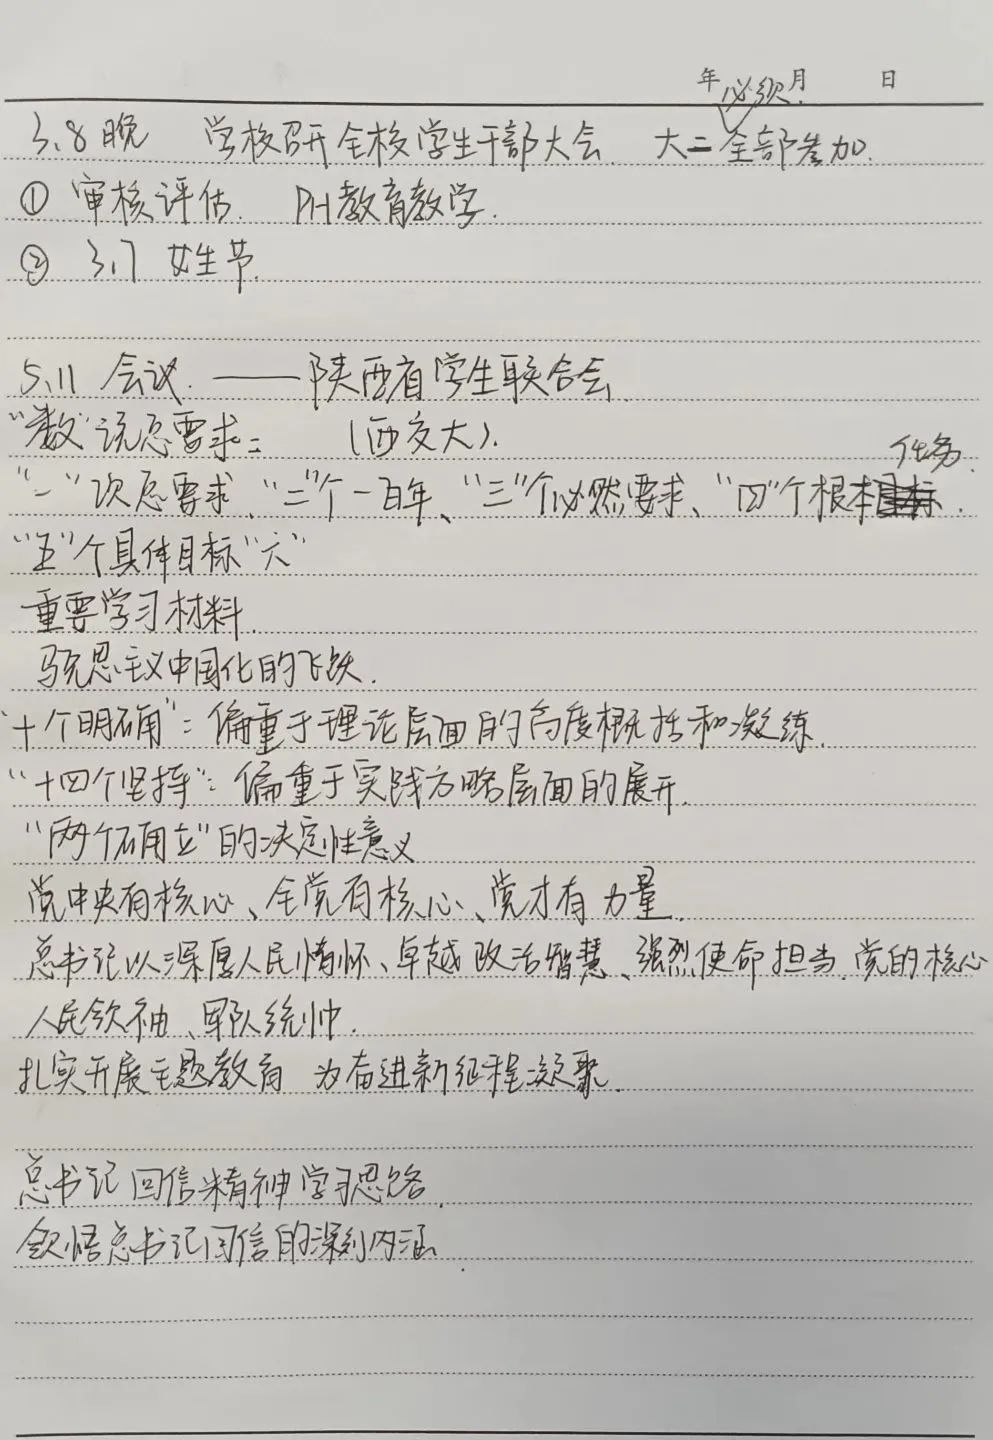 年 月 日
3.8晚 学校召开全校学生干部大会. 大二必须全部参加.
① 审核评估. PH教育教学.
② 3.7 女生节.
5.11 会议. ——陕西省学生联合会.
“数”说总要求: (西交大).
“一”次总要求、“二”个一百年、“三”个必然要求、“四”个根本任务.
“五”个具体目标“六”
重要学习材料.
马克思主义中国化的飞跃.
“十个明确”: 偏重于理论层面的高度概括和凝练.
“十四个坚持”: 偏重于实践方略层面的展开.
“两个确立”的决定性意义
党中央有核心、全党有核心、党才有力量.
总书记以深厚人民情怀、卓越政治智慧、强烈使命担当. 党的核心
人民领袖、军队统帅.
扎实开展主题教育 为奋进新征程凝聚.
总书记回信精神学习思路.
领悟总书记回信的深刻内涵.